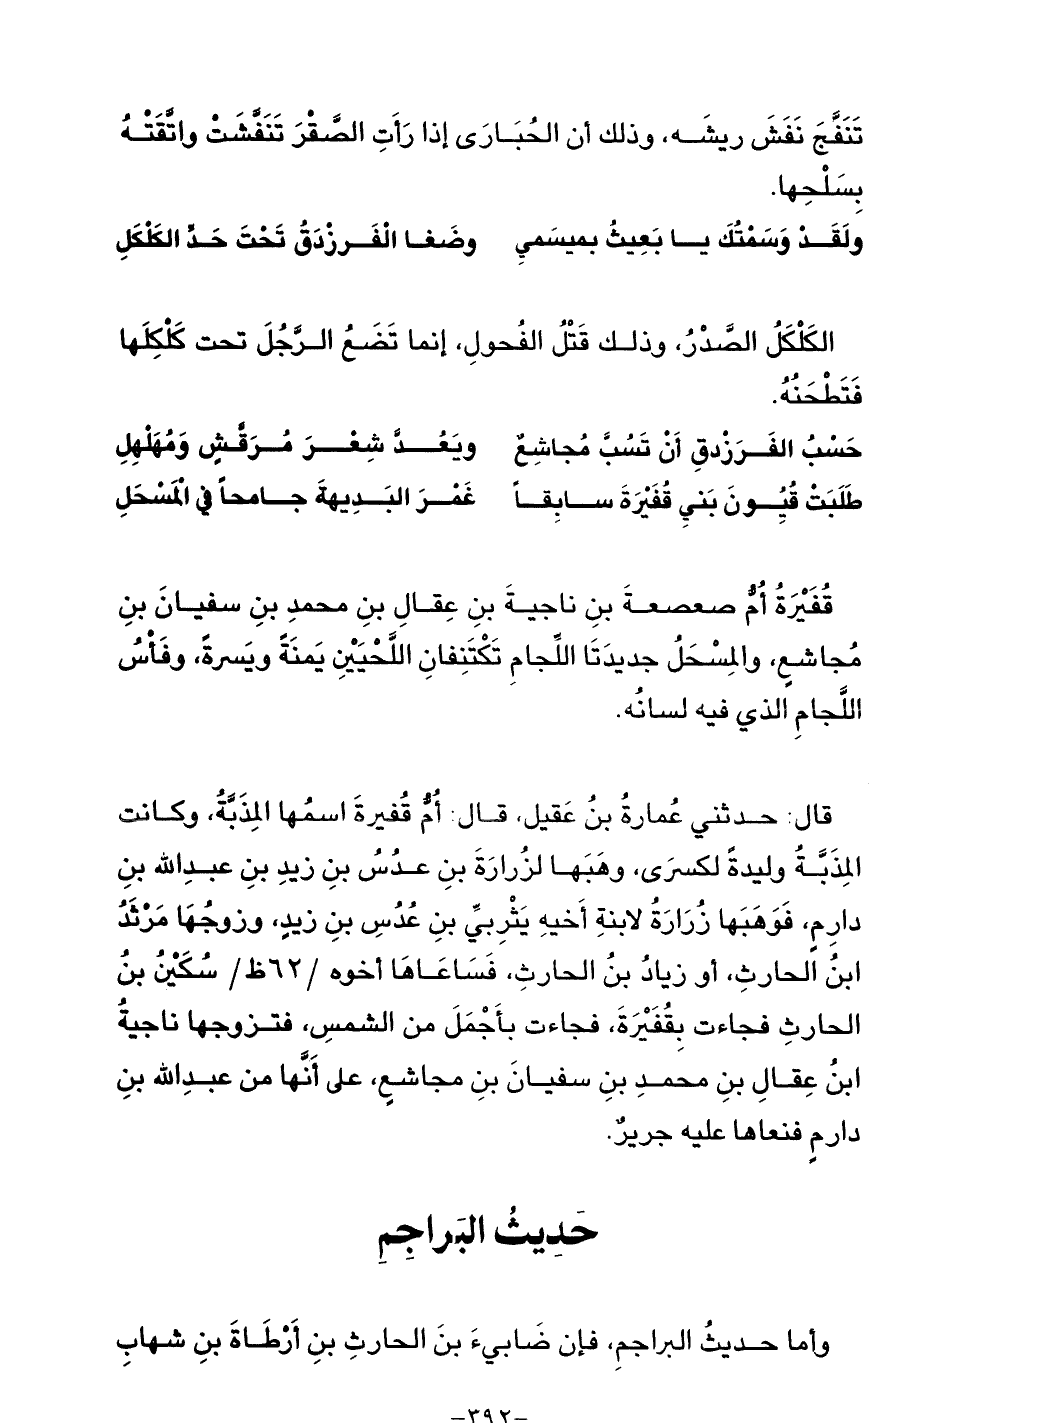 تَنَفَّجَ نَفَشَ ريشَـه، وذلك أن الحُبَـارَى إذا رَأَتِ الصَّقْرَ تَنَفَّشَتْ واتَّقَتْـهُ
بِسَلْحِها.
ولَقَـدْ وَسَمْتُكَ يـا بَعِيثُ بميسَمي وضَغـا الْفَـرزْدَقُ تَحْتَ حَـدِّ الكَلْكَلِ
الكَلْكَلُ الصَّدْرُ، وذلـك قَتْلُ الفُحولِ، إنما تَضَعُ الـرَّجُلَ تحت كَلْكِلَها
فَتَطْحَنُهُ.
حَسْبُ الفَـرَزْدقِ أَنْ تَسُبَّ مُجاشِعٌ ويَعُـدَّ شِعْـرَ مُـرَقَّشٍ وَمُهَلْهِلِ
طَلَبَتْ قُيُـونَ بَني قُفَيْرَةَ سـابِقـاً غَمْرَ البَـدِيهةَ جـامحاً في الْمَسْحَلِ
قُفَيْرَةُ أُمُّ صعصعـةَ بنِ ناجيـةَ بنِ عِقـالِ بنِ محمدِ بنِ سفيـانَ بنِ
مُجاشعٍ، والمِسْحَلُ جديدَتَا اللِّجامِ تَكْتَنِفانِ اللَّحْيَيْنِ يَمنَةً ويَسرةً، وفَأْسُ
اللَّجامِ الذي فيه لسانُه.
قال: حـدثني عُمارةُ بنُ عَقيل، قـال: أُمُّ قُفيرةَ اسمُها المِذَبَّةُ، وكـانت
المِذَبَّـةُ وليدةً لكسرَى، وهَبَهـا لزُرارَةَ بنِ عـدُسُ بنِ زيدِ بنِ عبـدِالله بنِ
دارمٍ، فَوَهَبَها زُرَارَةُ لابنةِ أخيهِ يَثْرِبيِّ بنِ عُدُسِ بنِ زيدٍ، وزوجُهَا مَرْثَدُ
ابنُ الحارثِ، أو زيادُ بنُ الحارثِ، فَسَاعَـاهَا أخوه /٦٢ظ/ سُكَيْنُ بنُ
الحارثِ فجاءت بِقُفَيْرَةَ، فجاءت بأَجْمَلَ من الشمسِ، فتـزوجها ناجيةُ
ابنُ عِقـالِ بنِ محمـدِ بنِ سفيـانَ بنِ مجاشعٍ، على أَنَّها من عبـدِالله بنِ
دارمٍ فنعاها عليه جريرٌ.
حَدِيثُ البَراجِمِ
وأما حـديثُ البراجمِ، فإن ضَابيءَ بنَ الحارثِ بنِ أَرْطَـاةَ بنِ شهابِ
-٣٩٢-